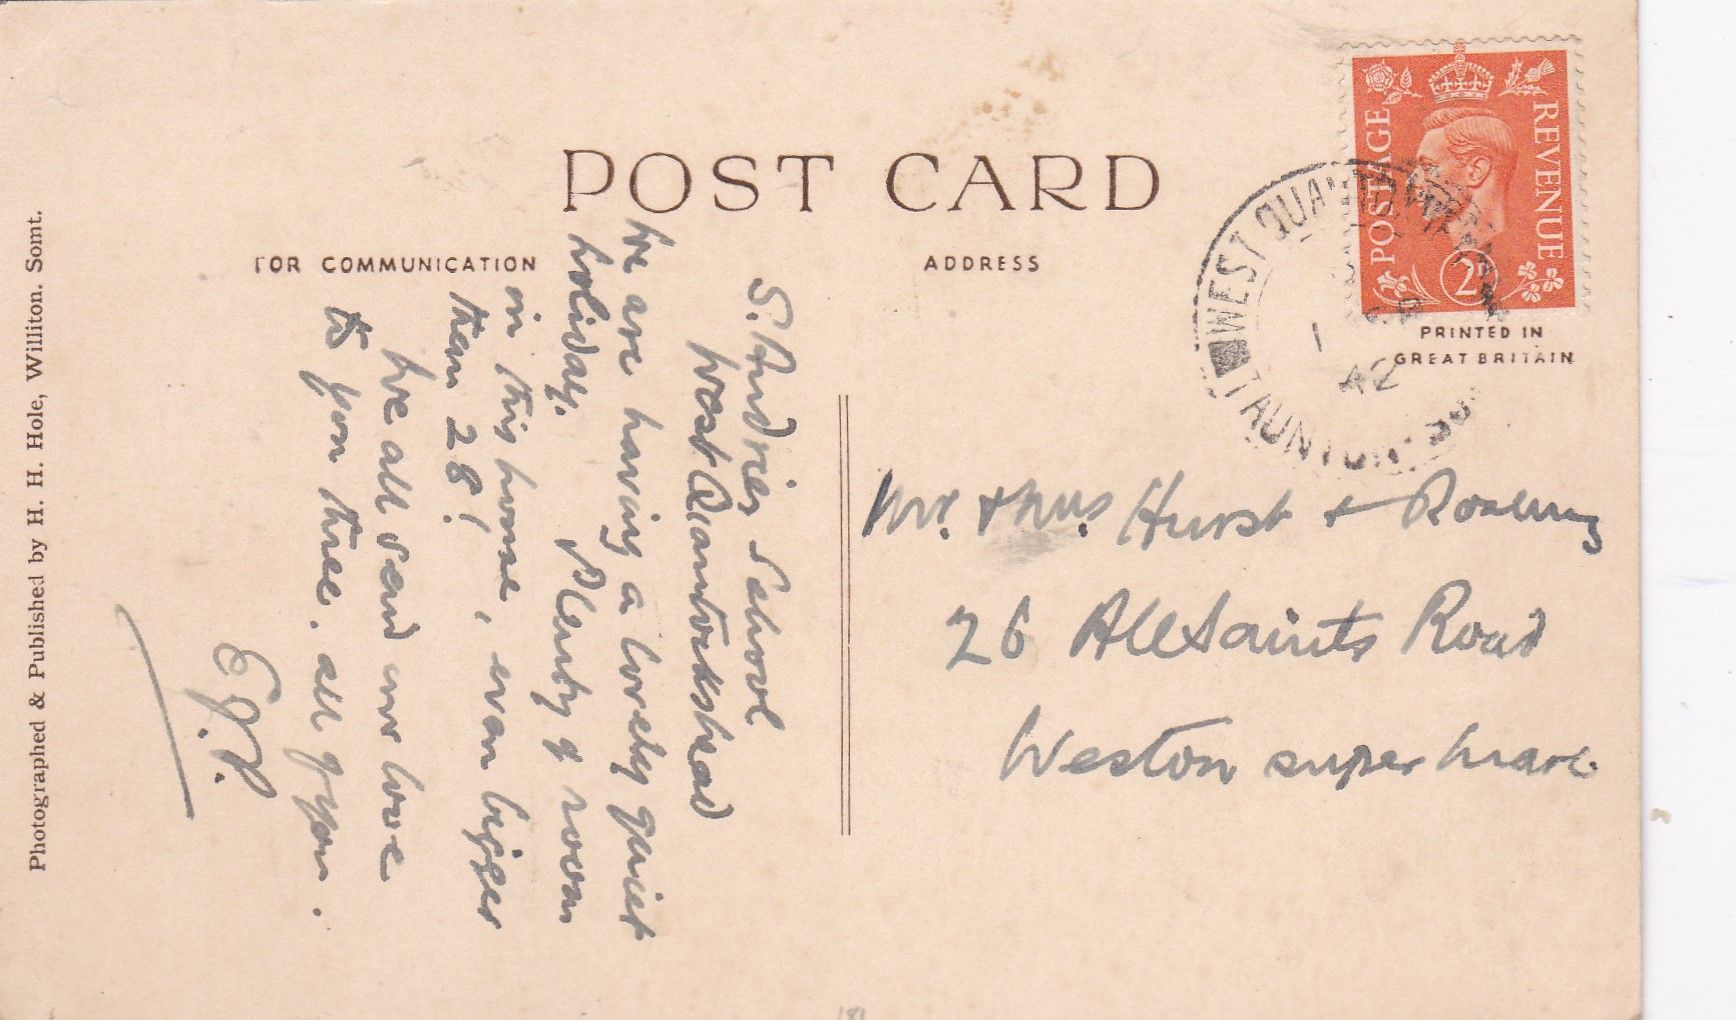 POST CARD
FOR COMMUNICATION
ADDRESS
S. Andries School
West Quantockshead
We are having a lovely quiet
holiday. Plenty of room
in this house, even bigger
than 28!
We all send our love
to you three. all of you.
E.J.P.
POSTAGE
REVENUE
2D
WEST QUANTOXHEAD
TAUNTON. SOM
1
42
PRINTED IN
GREAT BRITAIN
Mr. & Mrs Hurst + Rosemary
26 All Saints Road
Weston super Mare.
Photographed & Published by H. H. Hole, Williton. Somt.
181